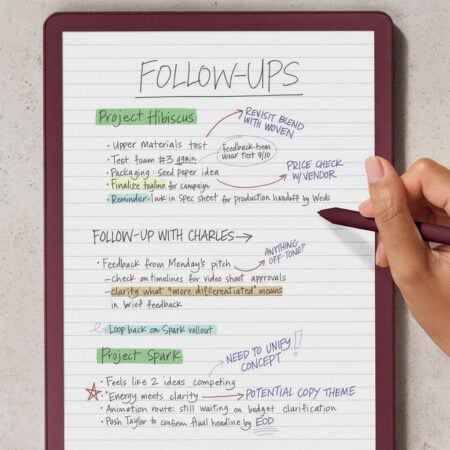 FOLLOW-UPS
Project Hibiscus
REVISIT BLEND
WITH WOVEN
• Upper Materials test
• Test foam #3 again
feedback from
wear test 9/10
• Packaging: Seed paper idea
PRICE CHECK
W/VENDOR
• Finalize tagline for campaign
• Reminder: link in spec sheet for production handoff by Weds
FOLLOW-UP WITH CHARLES →
ANYTHING
OFF-TONE?
• Feedback from Monday's pitch
– check on timelines for video shoot approvals
– clarity what "more differeatiated" means
in brief feedback
Loop back on Spark rollout
Project Spark
NEED TO UNIFY
CONCEPT
!
• Feels like 2 ideas competing
• Energy meets clarity → POTENTIAL COPY THEME
• Animation route: still waiting on budget clarification
• Push Taylor to confirm final headline by EOD